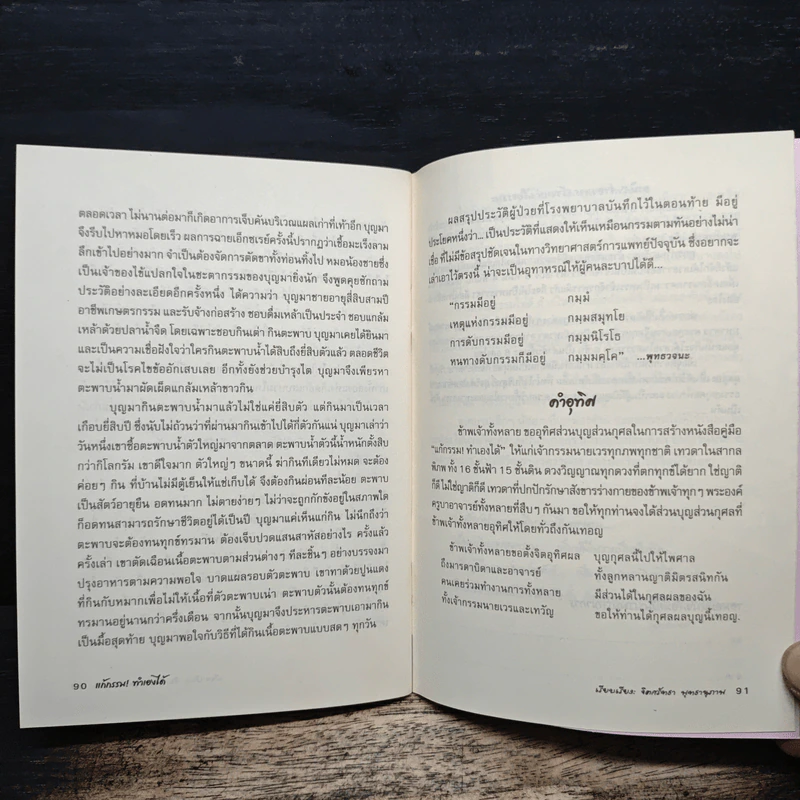 ตลอดเวลา ไม่นานต่อมาก็เกิดอาการเจ็บคันบริเวณแผลเก่าที่เท้าอีก บุญมา
จึงรีบไปหาหมอโดยเร็ว ผลการฉายเอ็กซเรย์ครั้งนี้ปรากฏว่าเชื้อมะเร็งลาม
ลึกเข้าไปอย่างมาก จำเป็นต้องจัดการตัดขาทั้งท่อนทิ้งไป หมอน้องชายซึ่ง
เป็นเจ้าของไข้แปลกใจในชะตากรรมของบุญมายิ่งนัก จึงพูดคุยซักถาม
ประวัติอย่างละเอียดอีกครั้งหนึ่ง ได้ความว่า บุญมาชายอายุสี่สิบสามปี
อาชีพเกษตรกรรม และรับจ้างก่อสร้าง ชอบดื่มเหล้าเป็นประจำ ชอบแกล้ม
เหล้าด้วยปลาน้ำจืด โดยเฉพาะชอบกินเต่า กินตะพาบ บุญมาเคยได้ยินมา
และเป็นความเชื่อฝังใจว่าใครกินตะพาบน้ำได้สิบถึงยี่สิบตัวแล้ว ตลอดชีวิต
จะไม่เป็นโรคไขข้ออักเสบเลย อีกทั้งยังช่วยบำรุงไต บุญมาจึงเพียรหา
ตะพาบน้ำมาผัดเผ็ดแกล้มเหล้าขาวกิน
บุญมากินตะพาบน้ำมาแล้วไม่ใช่แค่ยี่สิบตัว แต่กินมาเป็นเวลา
เกือบยี่สิบปี ซึ่งนับไม่ถ้วนว่าที่ผ่านมากินเข้าไปได้กี่ตัวกันแน่ บุญมาเล่าว่า
วันหนึ่งเขาซื้อตะพาบน้ำตัวใหญ่มาจากตลาด ตะพาบน้ำนี้น้ำหนักตั้งสิบ
กว่ากิโลกรัม เขาดีใจมาก ตัวใหญ่ๆ ขนาดนี้ ฆ่ากินทีเดียวไม่หมด จะต้อง
ค่อยๆ กิน ที่บ้านไม่มีตู้เย็นให้แช่เก็บได้ จึงต้องกินผ่อนทีละน้อย ตะพาบ
เป็นสัตว์อายุยืน อดทนมาก ไม่ตายง่ายๆ ไม่ว่าจะถูกกักขังอยู่ในสภาพใด
ก็อดทนสามารถรักษาชีวิตอยู่ได้เป็นปี บุญมาแค่เห็นแก่กิน ไม่นึกถึงว่า
ตะพาบจะต้องทนทุกข์ทรมาน ต้องเจ็บปวดแสนสาหัสอย่างไร ครั้งแล้ว
ครั้งเล่า เขาตัดเฉือนเนื้อตะพาบตามส่วนต่างๆ ทีละชิ้นๆ อย่างบรรจงมา
ปรุงอาหารตามความพอใจ บาดแผลรอบตัวตะพาบ เขาทาด้วยปูนแดง
ที่กินกับหมากเพื่อไม่ให้เนื้อที่ตัวตะพาบเน่า ตะพาบตัวนั้นต้องทนทุกข์
ทรมานอยู่นานกว่าครึ่งเดือน จากนั้นบุญมาจึงประหารตะพาบเอามากิน
เป็นมื้อสุดท้าย บุญมาพอใจกับวิธีที่ได้กินเนื้อตะพาบแบบสดๆ ทุกวัน
90 แก้กรรม! ทำเองได้
ผลสรุปประวัติผู้ป่วยที่โรงพยาบาลบันทึกไว้ในตอนท้าย มีอยู่
ประโยคหนึ่งว่า... เป็นประวัติที่แสดงให้เห็นเหมือนกรรมตามทันอย่างไม่น่า
เชื่อ ที่ไม่มีข้อสรุปชัดเจนในทางวิทยาศาสตร์การแพทย์ปัจจุบัน ซึ่งอยากจะ
เล่าเอาไว้ตรงนี้ น่าจะเป็นอุทาหรณ์ให้ผู้คนละบาปได้ดี...
"กรรมมีอยู่ กมฺมํ
เหตุแห่งกรรมมีอยู่ กมฺมสมุทโย
การดับกรรมมีอยู่ กมฺมนิโรโธ
หนทางดับกรรมก็มีอยู่ กมฺมมคฺโค" ...พุทธวจนะ
คำอุทิศ
ข้าพเจ้าทั้งหลาย ขออุทิศส่วนบุญส่วนกุศลในการสร้างหนังสือคู่มือ
"แก้กรรม! ทำเองได้" ให้แก่เจ้ากรรมนายเวรทุกภพทุกชาติ เทวดาในสากล
พิภพ ทั้ง 16 ชั้นฟ้า 15 ชั้นดิน ดวงวิญญาณทุกดวงที่ตกทุกข์ได้ยาก ใช่ญาติ
ก็ดี ไม่ใช่ญาติก็ดี เทวดาที่ปกปักรักษาสังขารร่างกายของข้าพเจ้าทุกๆ พระองค์
ครูบาอาจารย์ทั้งหลายที่สืบๆ กันมา ขอให้ทุกท่านจงได้ส่วนบุญส่วนกุศลที่
ข้าพเจ้าทั้งหลายอุทิศให้โดยทั่วถึงกันเทอญ
ข้าพเจ้าทั้งหลายขอตั้งจิตอุทิศผล บุญกุศลนี้ไปให้ไพศาล
ถึงมารดาบิดาและอาจารย์ ทั้งลูกหลานญาติมิตรสนิทกัน
คนเคยร่วมทำงานการทั้งหลาย มีส่วนได้ในกุศลผลของฉัน
ทั้งเจ้ากรรมนายเวรและเทวัญ ขอให้ท่านได้กุศลผลบุญนี้เทอญ.
เรียบเรียง: จิตตรัตธา พุทธานุภาพ 91